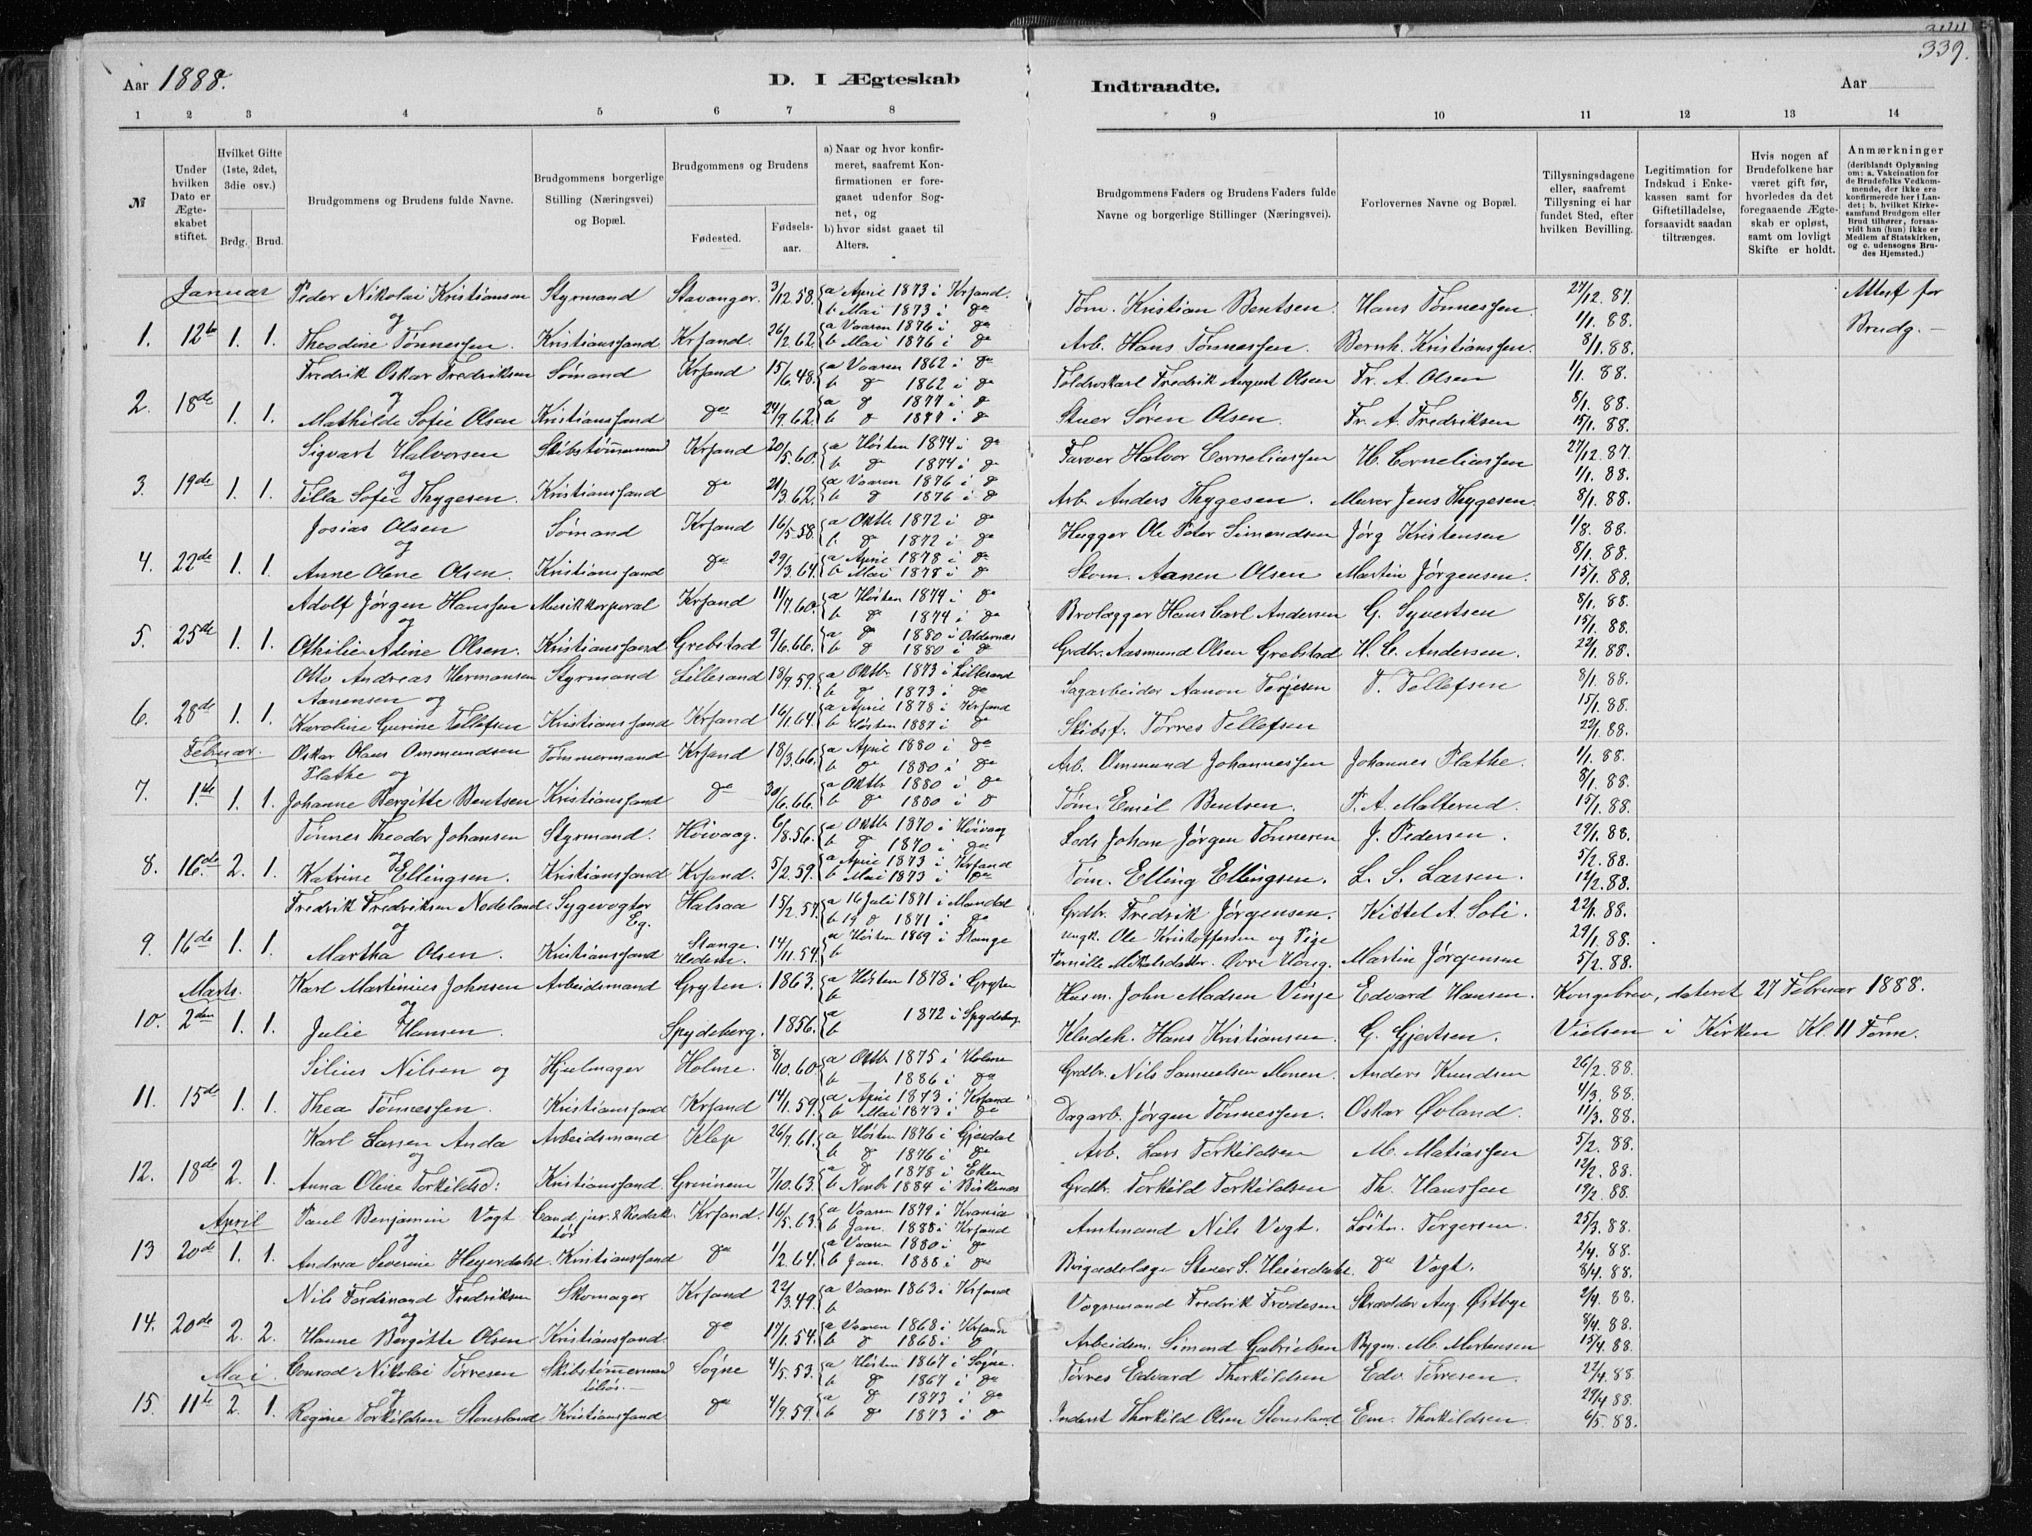 339.
Aar 1888.
D. I Ægteskab
Indtraadte.
Aar
1 2 3 4 5 6 7 8
9 10 11 12 13 14
№
Under hvilken Dato er Ægteskabet stiftet.
Hvilket Gifte (1ste, 2det, 3die osv.)
Brdg. Brud.
Brudgommens og Brudens fulde Navne.
Brudgommens borgerlige Stilling (Næringsvei) og Bopæl.
Brudgommens og Brudens
Fødested.
Fødselsaar.
a) Naar og hvor konfirmeret, saafremt Konfirmationen er foregaaet udenfor Sognet, og
b) hvor sidst gaaet til Alters.
Brudgommens Faders og Brudens Faders fulde Navne og borgerlige Stillinger (Næringsvei).
Forlovernes Navne og Bopæl.
Tillysningsdagene eller, saafremt Tillysning ei har fundet Sted, efter hvilken Bevilling.
Legitimation for Indskud i Enkekassen samt for Giftetilladelse, forsaavidt saadan tiltrænges.
Hvis nogen af Brudefolkene har været gift før, hvorledes da det foregaaende Ægteskab er opløst, samt om lovligt Skifte er holdt.
Anmærkninger
(deriblandt Oplysning om: a. Vakcination for de Brudefolks Vedkommende, der ikke ere konfirmerede her i Landet; b. hvilket Kirkesamfund Brudgom eller Brud tilhører, forsaavidt han (hun) ikke er Medlem af Statskirken, og c. udensogns Brudes Hjemsted.)
Januar Peder Nikolai Kristiansen Styrmand Stavanger. 3/12 58. a April 1873 i Krsand. Tøm. Kristian Bentsen Hans Tønnessen 27/12. 87. Attest for
og b Mai 1873 i do 1/1. 88. Brudg.
1. 12te 1. 1. Theodine Tønnessen. Kristianssand Krsand. 26/2 62 a Vaaren 1876 i do b Mai 1876 i do Arb. Hans Tønnessen. Bernh. Kristianssen. 8/1. 88.
Fredrik Oskar Fredriksen Sømand Krsand 15/6. 48. a Vaaren 1862 i do b do 1862 i do Toldroskarl Fredrik August Olsen Fr. A. Olsen 1/1. 88.
og 8/1. 88.
2. 18de 1. 1. Mathilde Sofie Olsen Kristianssand do 24/9. 62. a do 1877 i do b do 1877 i do Stuer Søren Olsen. Fr. A. Fredriksen 15/1. 88.
Sigvart Halvorsen Skibstømmermand Krsand 20/5. 60. a Høsten 1874 i do b do 1874 i do Farver Halvor Corneliussen H. Corneliussen 27/12. 87.
og 1/1. 88.
3. 19de 1. 1. Tilla Sofie Thygesen. Kristianssand do 21/3. 62. a Vaaren 1876 i do b do 1876 i do Arb. Anders Thygesen. Murer Jens Thygesen. 8/1. 88.
Josias Olsen Sømand Krsand 16/5. 58. a Oktb 1872 i do b do 1872 i do Hugger Ole Peter Simondsen Jørg Kristensen 1/8. 88.
og 8/1. 88.
4. 22de 1. 1. Anne Olene Olsen. Kristianssand do 29/3. 64. a April 1878 i do b Mai 1878 i do Skom. Aanen Olsen Martin Jørgensen. 15/1. 88.
Adolf Jørgen Hanssen Musikkorporal Krsand 11/7. 60. a Høsten 1874 i do b do 1874 i do Brolægger Hans Carl Andersen G. Syvertsen 8/1. 88.
og 15/1. 88.
5. 25de 1. 1. Othilie Adine Olsen. Kristianssand Grebstad 9/6. 66. a do 1880 i Oddernæs b do 1880 i do Grdbr. Aasmund Olsen Grebstad H. C. Andersen. 22/1. 88.
Otto Andreas Hermansen Styrmand Lillesand 18/9. 59. a Oktbr 1873 i Lillesand b do 1873 i do Sagarbeider Aanon Terjesen T. Tellefsen 8/1. 88.
Aanensen og 15/1. 88.
6. 28de 1. 1. Karoline Gurine Tellefsen Kristianssand Krsand 16/1. 64. a April 1878 i Krsand b Høsten 1887 i do Skibsf. Tørres Tellefsen 22/1. 88.
Februar. Oskar Olaus Ommundsen Tømmermand Krsand 18/3. 66. a April 1880 i do b do 1880 i do Arb. Ommund Johannessen Johannes Plathe. 1/1. 88.
Plathe og 8/1. 88.
7. 1.ste 1. 1. Johanne Bergitte Bentsen Kristianssand do 30/6. 66. a Oktbr 1880 i do b do 1880 i do Tøm. Emil Bentsen. P. A. Malterud. 15/1. 88.
Tønnes Theodor Johansen Styrmand. Høivaag. 6/8. 56. a Oktbr 1870 i Høivaag b do 1870 i do Lods Johan Jørgen Tønnesen J. Pedersen. 29/1. 88.
og 5/2. 88.
8. 16.de 2. 1. Katrine Ellingsen. Kristianssand Krsand. 5/2. 59. a April 1873 i Krsand b Mai 1873 i do Tøm. Elling Ellingsen. L. S. Larsen. 12/2. 88.
Fredrik Fredriksen Nodeland. Sygevogter Halsaa 15/2. 57. a 16 Juli 1871 i Mandal b 19 do 1871 i do Grdbr. Fredrik Jørgensen. Kittel A. Sobi. 22/1. 88.
og Eg. Ungk. Ole Kristoffersen og Pige 29/1. 88.
9. 16de 1. 1. Martha Olsen. Kristianssand Stange. Hedem. 14/11. 54. a Høsten 1869 i Stange b Pernille Mikalsdatter. Øvre Houg. Martin Jørgensen 5/2. 88.
Marts. Karl Martinius Johnsen Arbeidsmand Gryten. 1863. a Høsten 1878 i Gryten b Husm. John Madsen Vinje Edvard Hansen. Kongebrev, dateret 27 Februar 1888.
og
10. 2den 1. 1. Julie Hansen. Spydeberg. 1856. a 1872 i Spydeberg b Kludek. Hans Kristiansen. G. Gjertsen. Vielsen i Kirken Kl. 11 Form.
Silius Nilsen og Hjulmager Holme. 8/10. 60. a Oktb 1875 i Holme b 1886 i do Grdbr. Nils Samuelsen Monen. Anders Knudsen 26/2. 88.
4/3. 88.
11. 15de 1. 1. Thea Tønnessen. Kristianssand Krsand 14/1. 59. a April 1873 i Krsand b Mai 1873 i do Dagarb. Jørgen Tønnessen. Oskar Øvland. 11/3. 88.
Karl Larsen Anda Arbeidsmand Klep 26/7. 61. a Høsten 1876 i Gjesdal b do 1876 i do Arb. Lars Torkildsen M. Matiassen 5/2. 88.
og 12/2. 88.
12. 18de 2. 1. Anna Olene Torkildsd: Kristianssand. Grinnem 7/10. 63. a do 1878 i Eken b Novb 1884 i Birkenæs Grdbr. Torkild Torkildsen Th. Hanssen 19/2. 88.
April Paul Benjamin Vogt Cand. jur. & Redaktør Krsand. 16/5. 63. a Vaaren 1879 i Krania b Jan. 1888 i Krsand Amtmand Nils Vogt. Løitn. Torgersen. 25/3. 88.
og 2/4. 88.
13 20de 1. 1. Andrea Severine Heyerdahl Kristianssand do 1/2. 64. a Vaaren 1880 i do b Jan. 1888 i do Brigadelæge Stener S. Heierdahl. do Vogt. 8/4. 88.
Nils Ferdinand Fredriksen Skomager Krsand 22/3. 49. a Vaaren 1863 i Krsand b Vognmand Fredrik Frodesen Skrædder Aug. Østbye 2/4. 88.
og 8/4. 88.
14. 20de 2. 2. Hanne Bergitte Olsen Kristianssand. do 17/1. 54. a Vaaren 1868 i Krsand b do 1868 i do Arbeidsm. Simond Gabrielsen Bygm. M. Mortensen 15/4. 88.
Mai. Conrad Nikolai Tørresen Skibstømmermand Søgne 4/5. 53. a Høsten 1867 i Søgne. b do 1867 i do Tørres Edvard Thorkildsen Edv. Tørresen. 22/4. 88.
og tilsøs. 29/4 88.
15. 11te 2. 1. Regine Torkildsen Stousland Kristianssand do 4/9. 59. a do 1873 i do b do 1873 i do Inderst Thorkild Olsen Stousland Em. Thorkildsen. 6/5. 88.